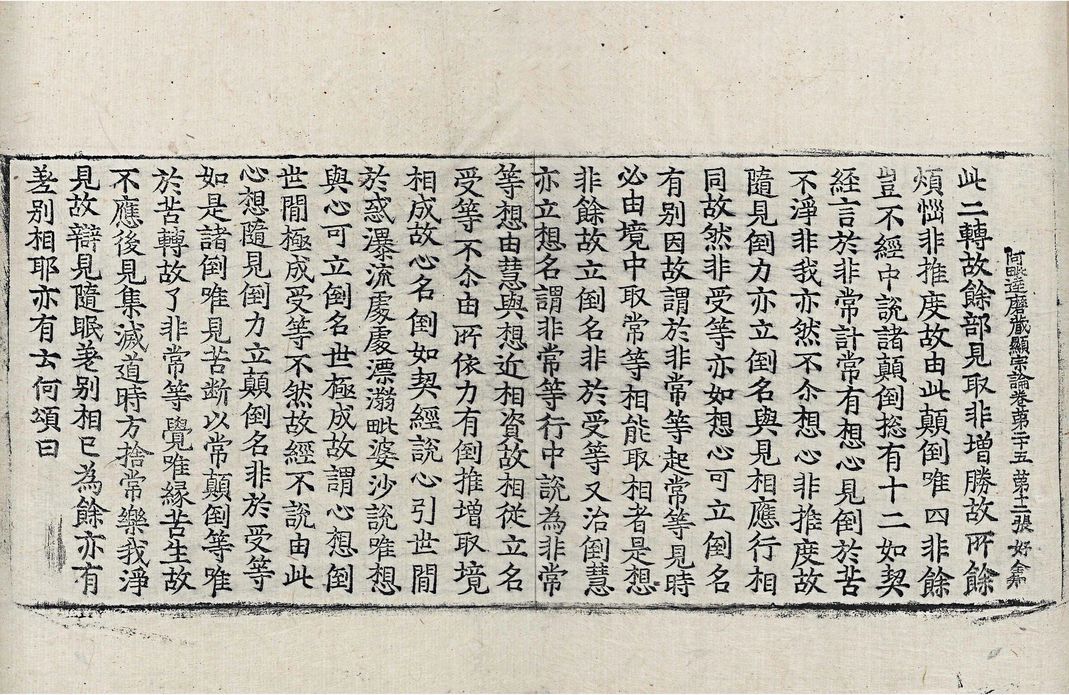 阿毗達磨藏顯宗論卷第二十五 第十二張 好
此二轉故餘部見取非增勝故所餘
煩惱非推度故由此顛倒唯四非餘
豈不經中說諸顛倒捴有十二如契
經言於非常計常有想心見倒於苦
不淨非我亦然不尒想心非推度故
隨見倒力亦立倒名與見相應行相
同故然非受等亦如想心可立倒名
有別因故謂於非常等起常等見時
必由境中取常等相能取相者是想
非餘故立倒名非於受等又治倒慧
亦立想名謂非常等行中說為非常
等想由慧與想近相資故相從立名
受等不尒由所依力有倒推增取境
相成故心名倒如契經說心引世間
於惑瀑流處處漂溺毗婆沙說唯想
與心可立倒名世極成故謂心想倒
世間極成受等不然故經不說由此
心想隨見倒力立顛倒名非於受等
如是諸倒唯見苦斷以常顛倒等唯
於苦轉故了非常等覺唯緣苦生故
不應後見集滅道時方捨常樂我淨
見故辯見隨眠差别相已為餘亦有
差别相耶亦有云何頌曰